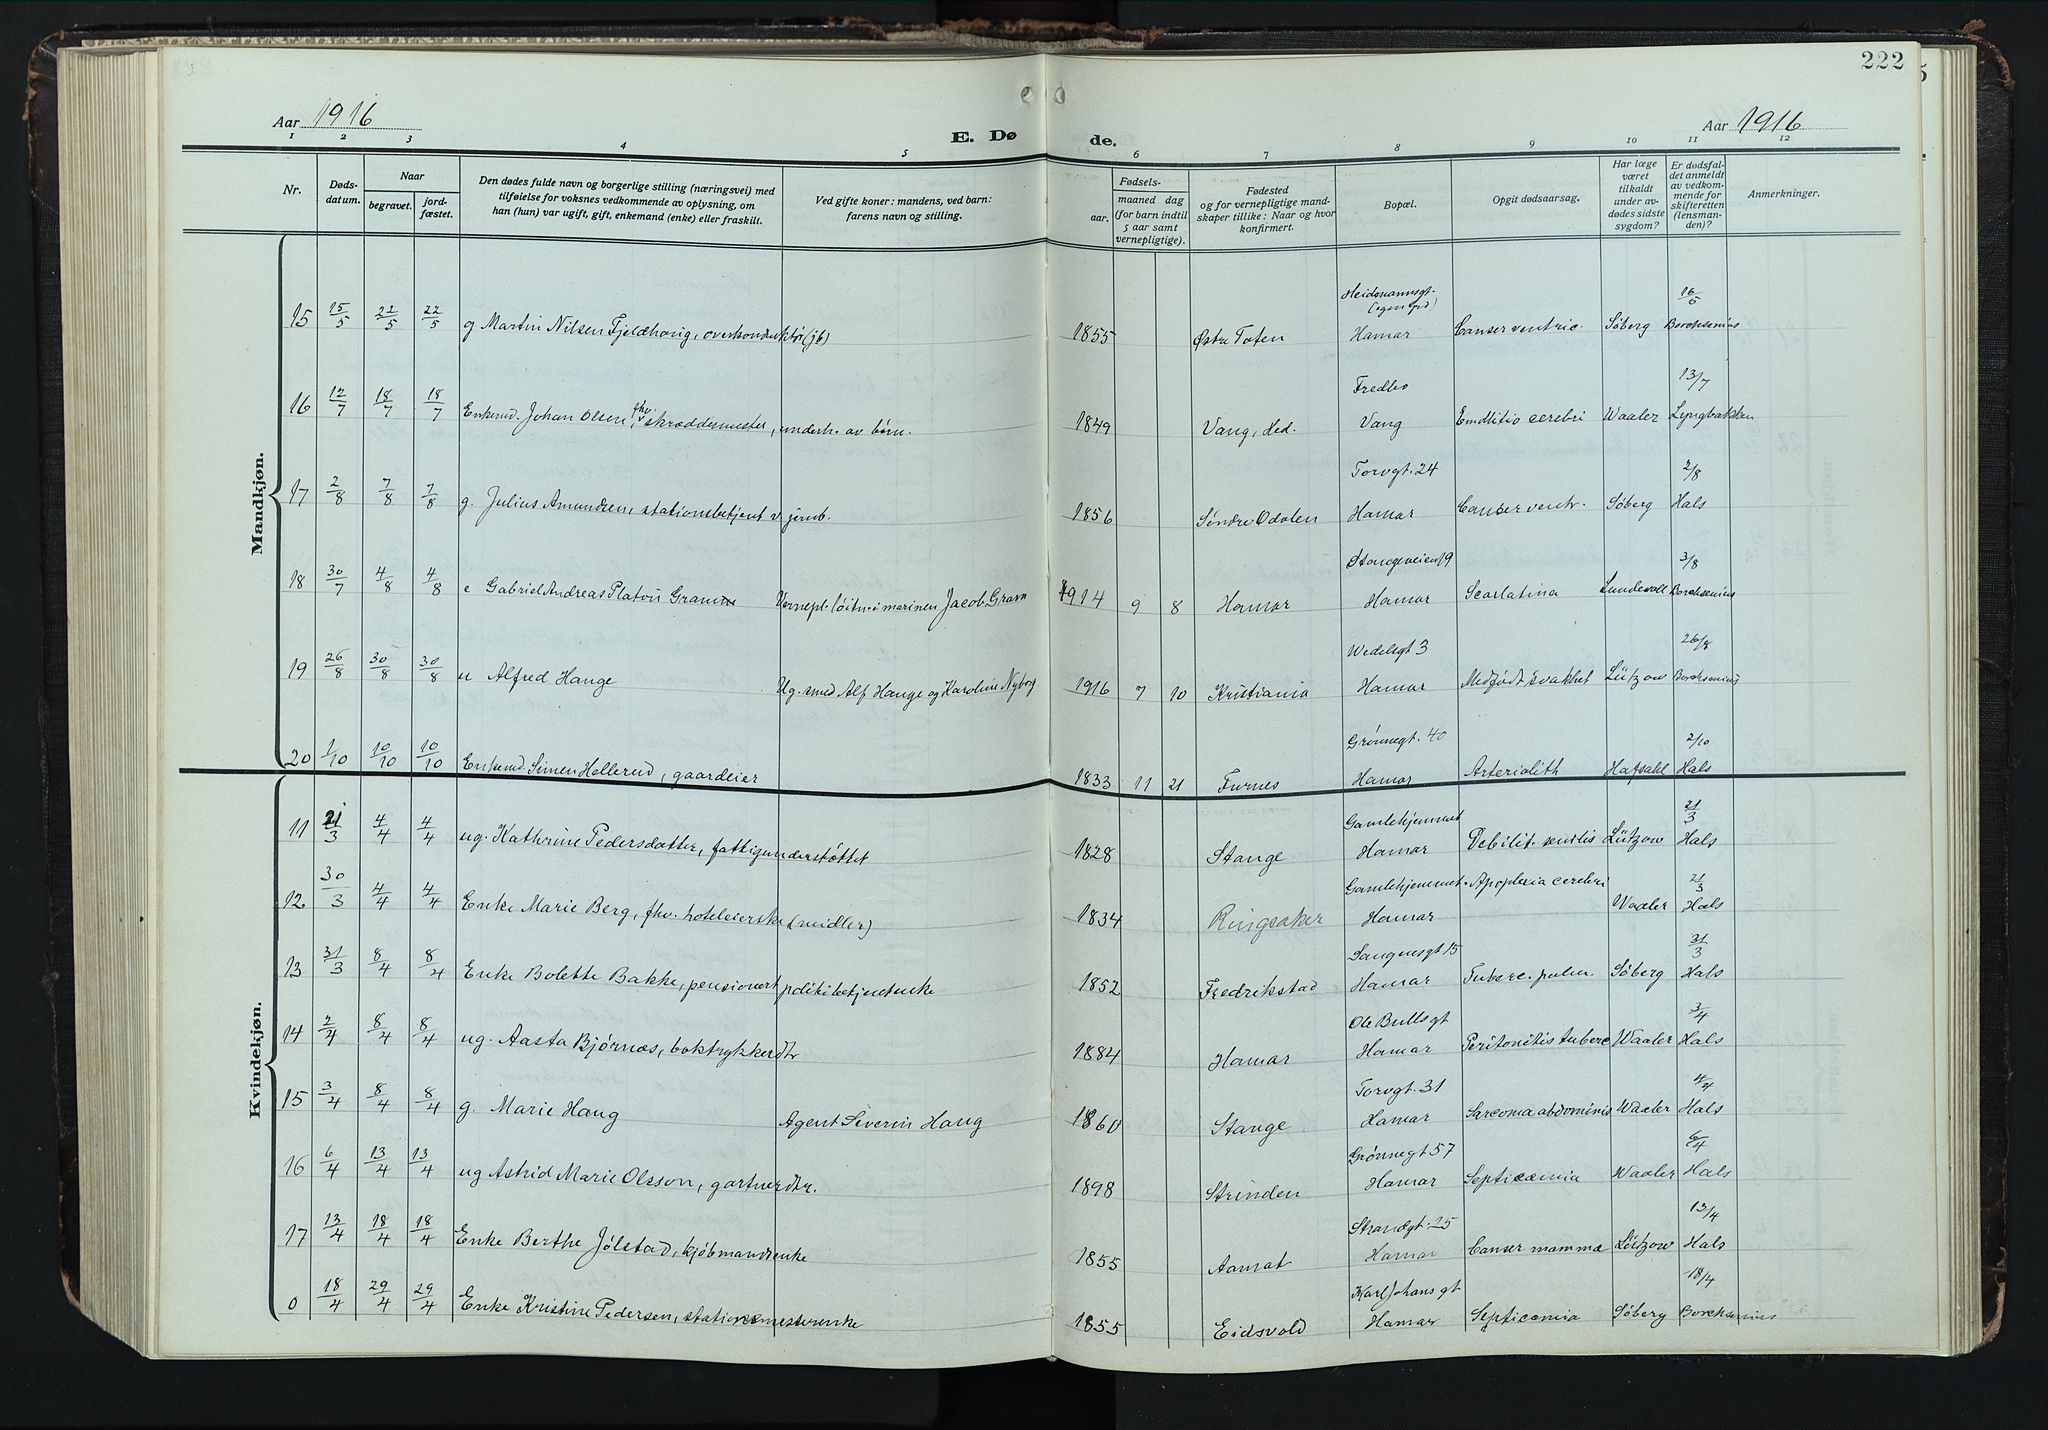 222
Aar 1916
E. Dø de.
Aar 1916
1 2 3 4 5 6 7 8 9 10 11 12
Nr.
Døds-
datum.
Naar
begravet.
jord-
fæstet.
Den dødes fulde navn og borgerlige stilling (næringsvei) med
tilføielse for voksnes vedkommende av oplysning, om
han (hun) var ugift, gift, enkemand (enke) eller fraskilt.
Ved gifte koner: mandens, ved barn:
farens navn og stilling.
Fødsels-
aar.
maaned dag
(for barn indtil
5 aar samt
vernepligtige).
Fødested
og for vernepligtige mand-
skaper tillike: Naar og hvor
konfirmert.
Bopæl.
Opgit dødsaarsag.
Har læge
været
tilkaldt
under av-
dødes sidste
sygdom?
Er dødsfal-
det anmeldt
av vedkom-
mende for
skifteretten
(lensman-
den)?
Anmerkninger.
Mandkjøn.
Heidmannsgt. 16/5
15 15/5 22/5 22/5 g Martin Nilsen Fjeldhaug, overkonduktør (jb) 1855 Østre Toten Hamar Canser ventric. Søberg Borchsenius
Fredbo 13/7
16 12/7 18/7 18/7 Enkemd. Johan Olsen, fhv. skræddermester, underh. av børn. 1849 Vang, Hed. Vang Emollitio cerebri Waaler Lyngbakken
Torvgt. 24 2/8
17 2/8 7/8 7/8 g. Julius Amundsen, stationsbetjent v. jernb. 1856 Søndre Odalen Hamar Canser ventr. Søberg Hals
Stangeveien 19 3/8
18 30/7 4/8 4/8 e Gabriel Andreas Platou Gram Vernepl. løitn. i marinen Jacob Gram 1914 9 8 Hamar Hamar Scarlatina Lundevall Borchsenius
Wedelsgt 3 26/8
19 26/8 30/8 30/8 u Alfred Hauge Ug. smed Alf Hauge og Karoline Nyborg 1916 7 10 Kristiania Hamar Medfødt svakhet Lützow Borchsenius
Grønnegt. 40 2/10
20 1/10 10/10 10/10 Enkemd. Simen Hellerud, gaardeier 1833 11 21 Furnes Hamar Hafsahl Hals
Kvindekjøn.
Gamlehjemmet 21/3
11 21/3 4/4 4/4 ug. Kathrine Pedersdatter, fattigunderstøttet 1828 Stange Hamar Debilit. senilis Lützow Hals
Gamlehjemmet. Apoplexia cerebri 21/3
12 30/3 4/4 4/4 Enke Marie Berg, fhv. hoteleierske (midler) 1834 Ringsaker Hamar Waaler Hals
Sangensgt 15 31/3
13 31/3 8/4 8/4 Enke Bolette Bakke, pensionert politibetjentenke 1852 Fredrikstad Hamar Tuberc. pulm. Søberg Hals
Ole Bullsgt 3/4
14 2/4 8/4 8/4 ug. Aasta Bjørnæs, boktrykkerdtr 1884 Hamar Hamar Peritonitis tuberc Waaler Hals
Torvgt. 31 4/4
15 3/4 8/4 8/4 g. Marie Haug Agent Severin Haug 1860 Stange Hamar Sarcoma abdominis Waaler Hals
Grønnegt 57 6/4
16 6/4 13/4 13/4 ug Astrid Marie Olsson, gartnerdtr. 1898 Strinden Hamar Septicæmia Waaler Hals
Strandgt. 25 13/4
17 13/4 18/4 18/4 Enke Berthe Jølstad, kjøbmandsenke 1855 Aamot Hamar Canser mammæ Lützow Hals
Karl Johans gt 18/4
0 18/4 29/4 29/4 Enke Kristine Pedersen, stationsmesterenke 1855 Eidsvold Hamar Septicæmia Søberg Borchsenius